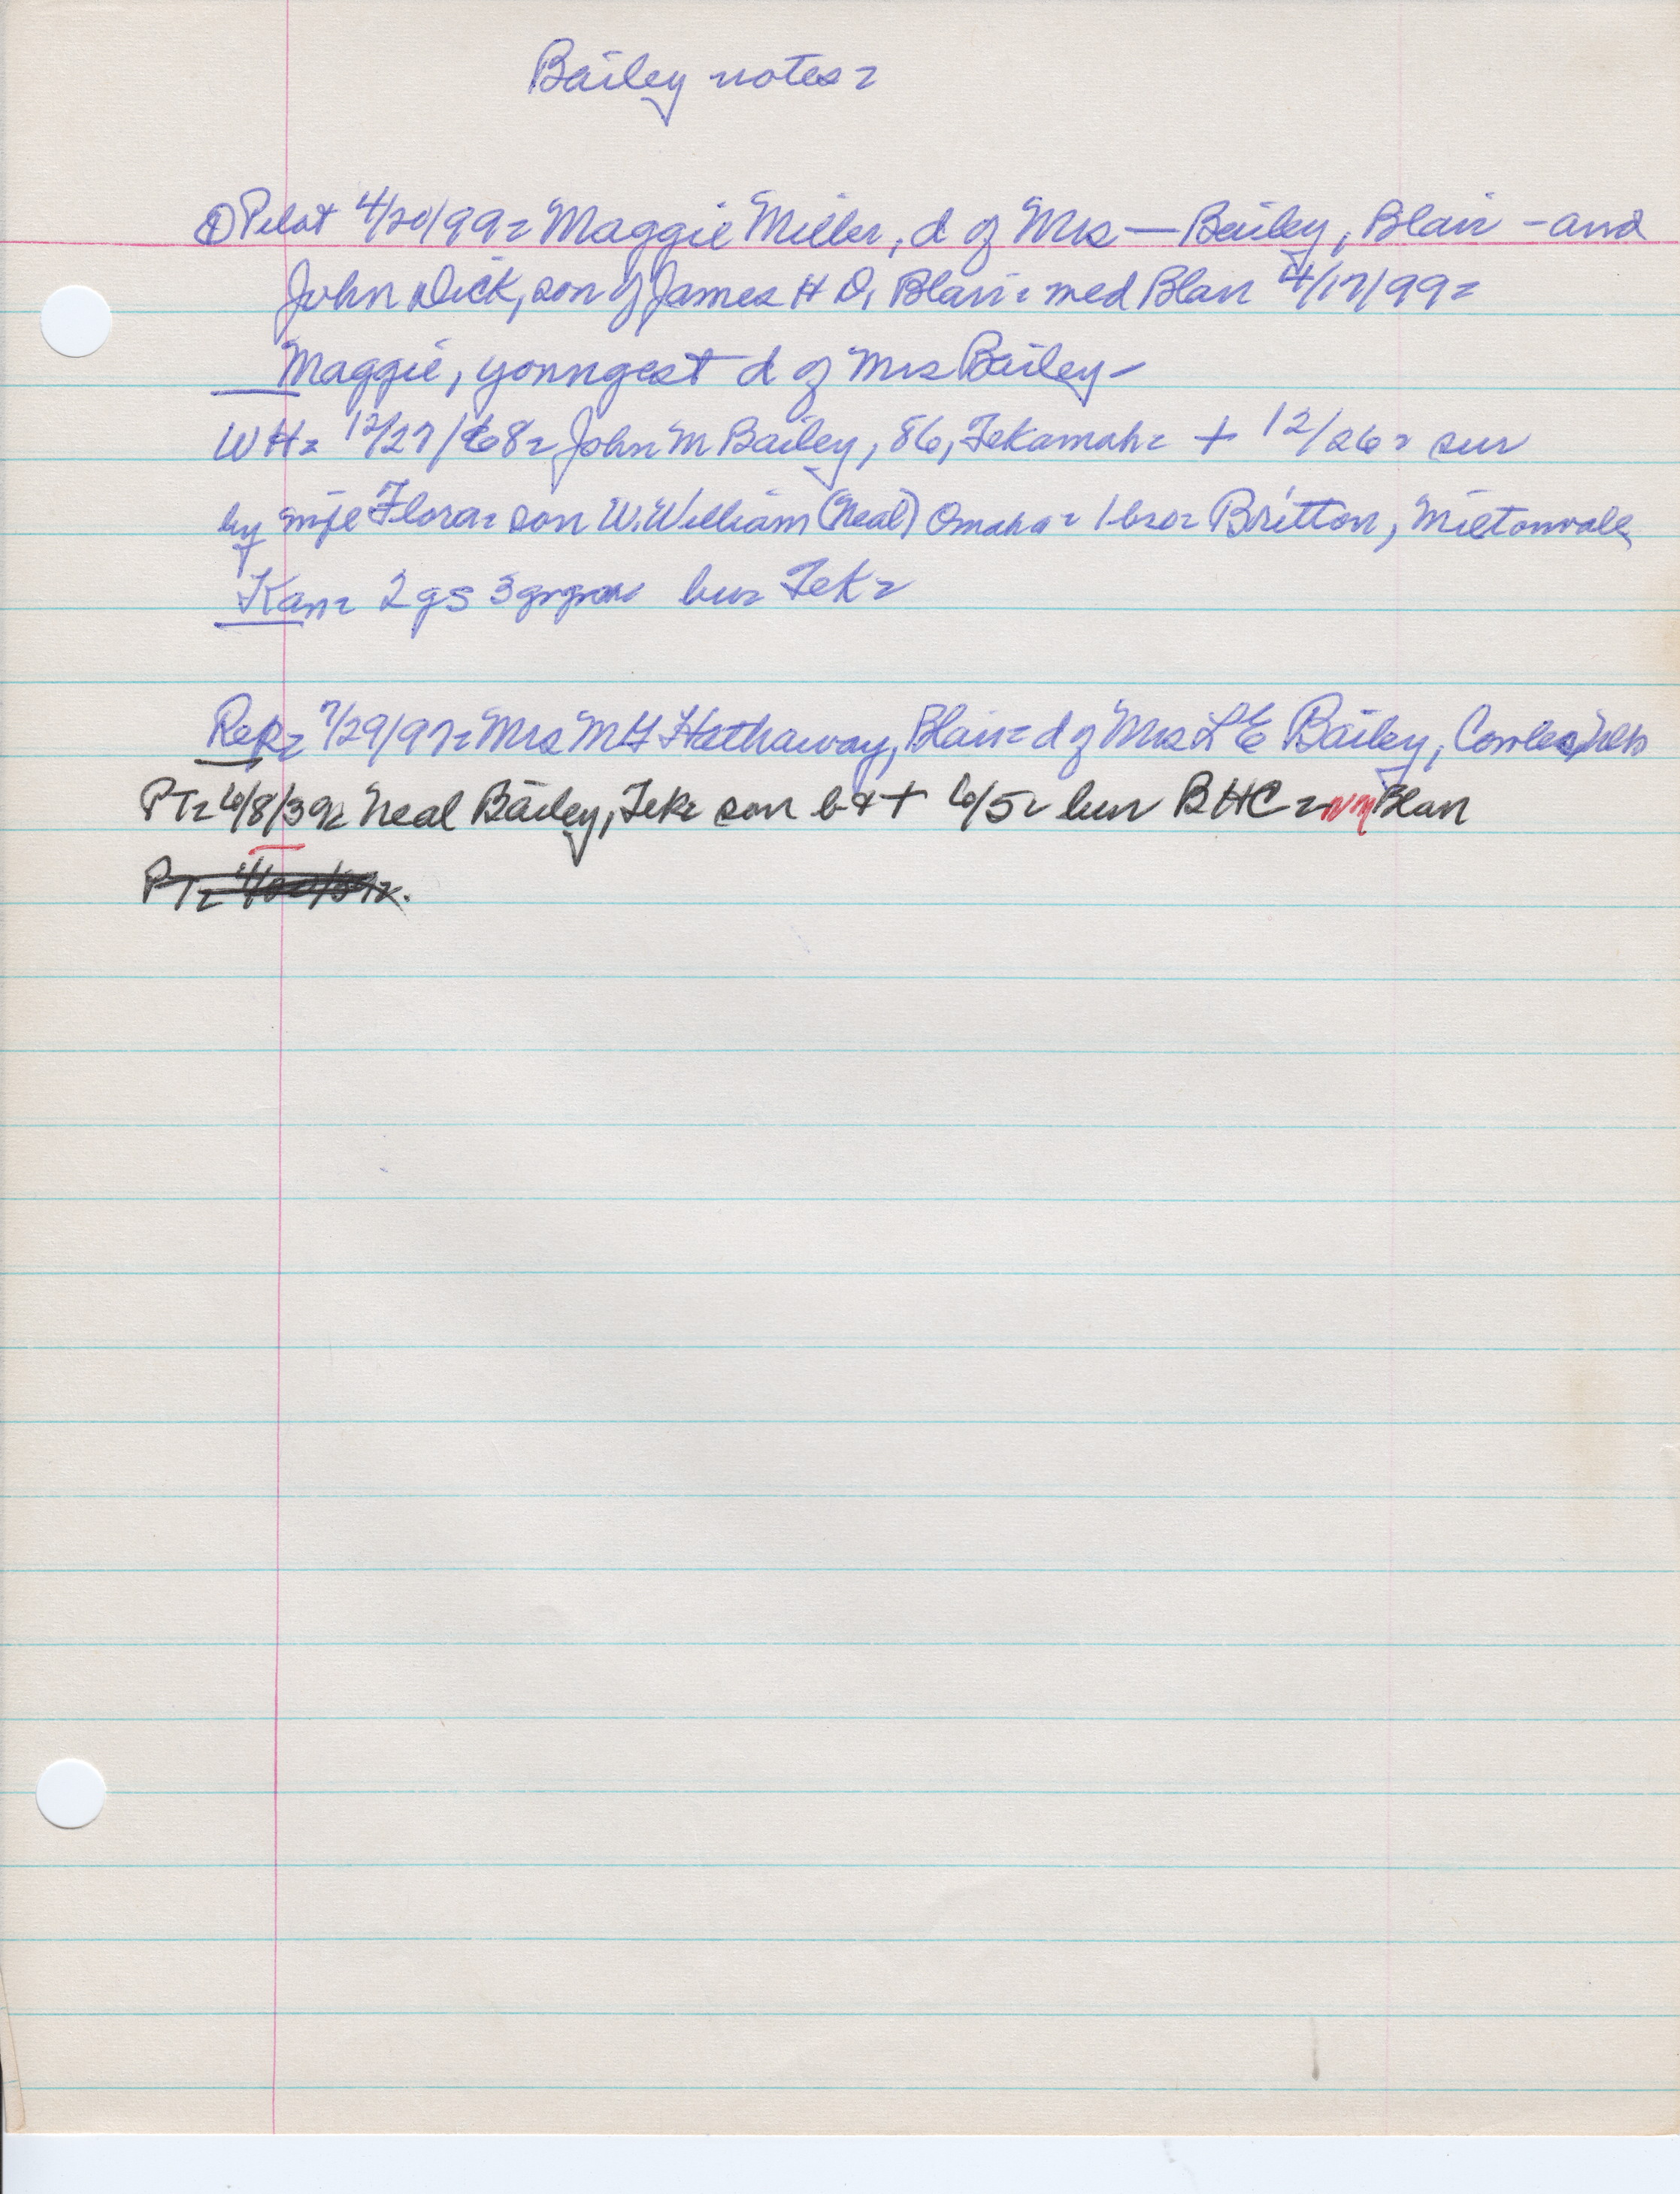 Bailey notes =
① Pilot 4/20/99 = Maggie Miller, d of Mrs — Bailey, Blair - and
John Dick, son of James H D, Blair = med Blair 4/17/99 =
Maggie, youngest d of Mrs Bailey -
WH = 12/27/68 = John M Bailey, 86, Tekamah = + 12/26 = sur
by wife Flora = son W. William (Neal) Omaha = 1 bro = Britton, Miltonvale,
Kan = 2 gs 3 bur Tek =
Rep = 7/29/97 = Mrs M Hathaway, Blair = d of Mrs L E Bailey, Cowles, Neb
PT = 6/8/39 = Neal Bailey, Tek = son b & + 6/5 = bur BHC = NM Blair
PT =